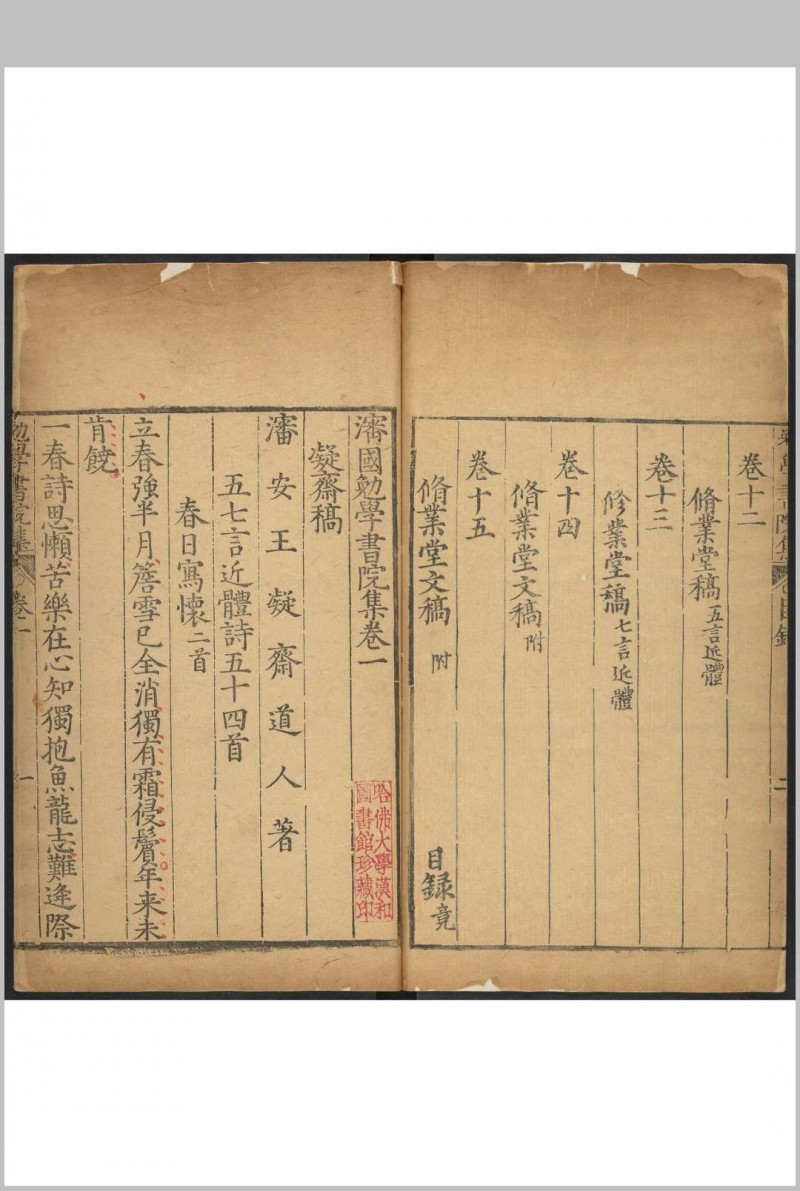 卷十二
脩業堂稿五言近體
卷十三
修業堂稿七言近體
卷十四
脩業堂文稿附
卷十五
脩業堂文稿 附
目録竟
瀋國勉學書院集卷一
凝齋稿
瀋安王凝齋道人著
五七言近體詩五十四首
春日寫懷二首
立春強半月簷雪已全消獨有霜侵鬢年来未
肯饒
一春詩思懶苦樂在心知獨抱魚龍志難逢際
勉學書院集
卷一
一
哈佛大學漢和
圖書館珍藏印